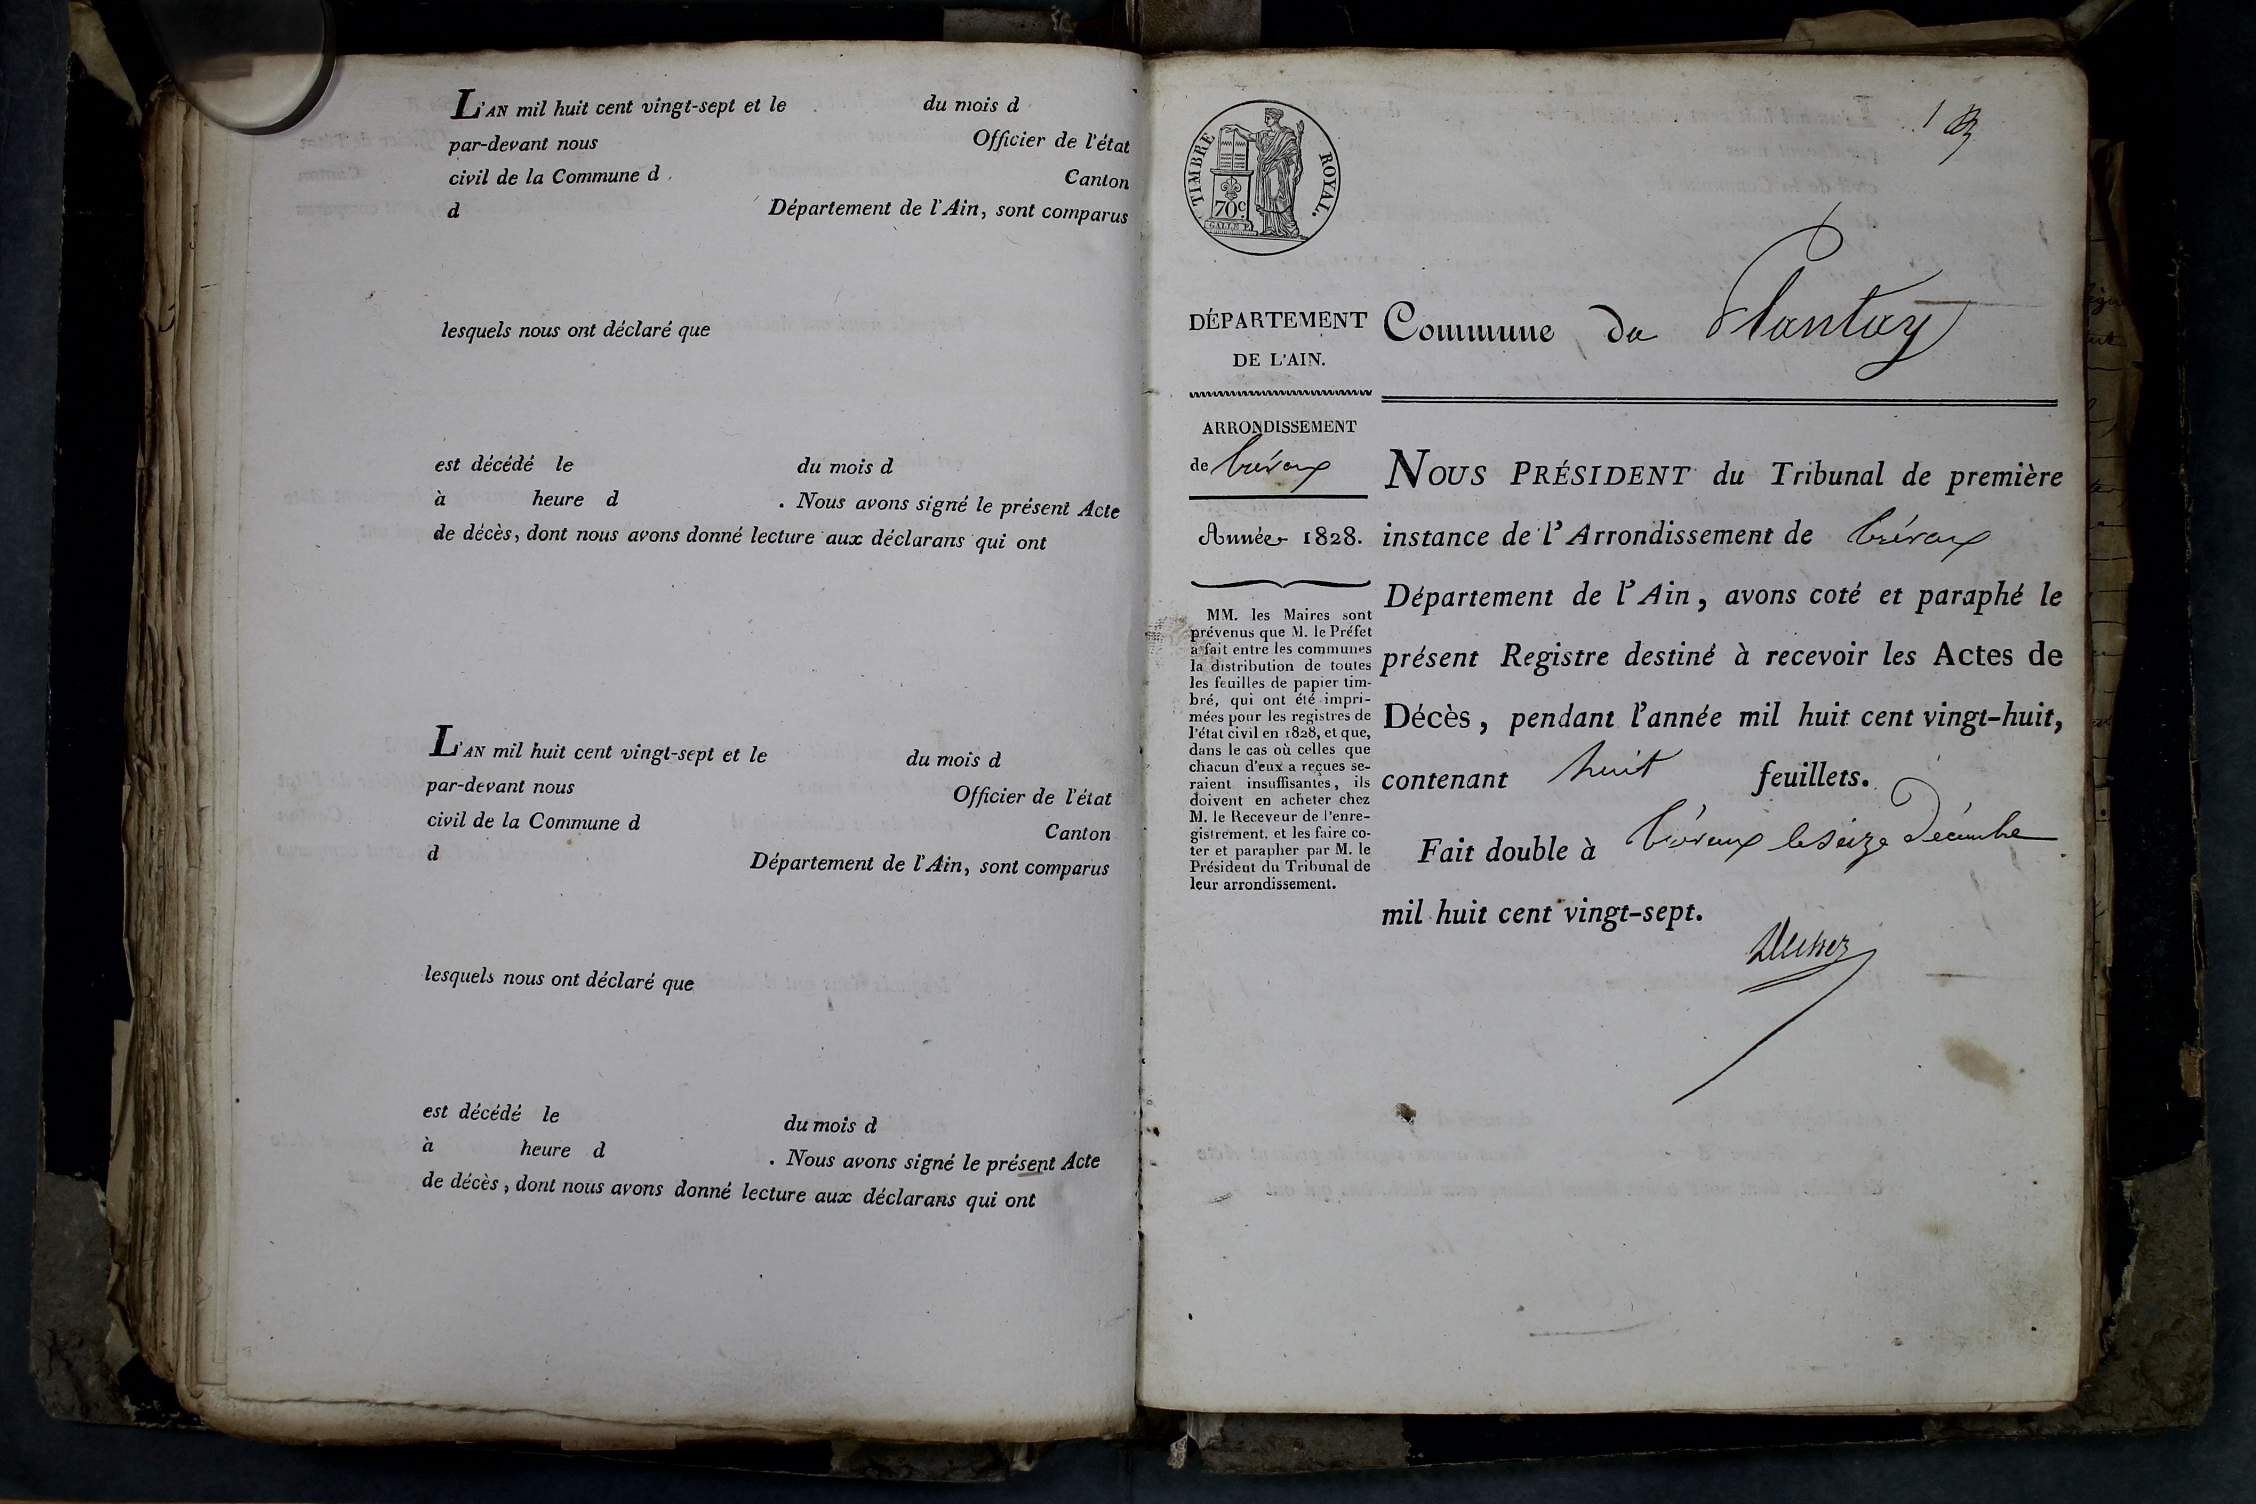 L'AN mil huit cent vingt-sept et le du mois d
par-devant nous Officier de l'état
civil de la Commune d Canton
d Département de l'Ain, sont comparus
lesquels nous ont déclaré que
est décédé le du mois d
à heure d . Nous avons signé le présent Acte
de décès, dont nous avons donné lecture aux déclarans qui ont
L'AN mil huit cent vingt-sept et le du mois d
par-devant nous Officier de l'état
civil de la Commune d Canton
d Département de l'Ain, sont comparus
lesquels nous ont déclaré que
est décédé le du mois d
à heure d . Nous avons signé le présent Acte
de décès, dont nous avons donné lecture aux déclarans qui ont
1
TIMBRE ROYAL.
70c.
GALLE F.
DÉPARTEMENT
DE L'AIN.
ARRONDISSEMENT
de Trévoux
Année 1828.
MM. les Maires sont
prévenus que M. le Préfet
a fait entre les communes
la distribution de toutes
les feuilles de papier tim-
bré, qui ont été impri-
mées pour les registres de
l'état civil en 1828, et que,
dans le cas où celles que
chacun d'eux a reçues se-
raient insuffisantes, ils
doivent en acheter chez
M. le Receveur de l'enre-
gistrement, et les faire co-
ter et parapher par M. le
Président du Tribunal de
leur arrondissement.
Commune du Plantay
NOUS PRÉSIDENT du Tribunal de première
instance de l'Arrondissement de Trévoux
Département de l'Ain, avons coté et paraphé le
présent Registre destiné à recevoir les Actes de
Décès, pendant l'année mil huit cent vingt-huit,
contenant huit feuillets.
Fait double à Trévoux le seize Décembre
mil huit cent vingt-sept.